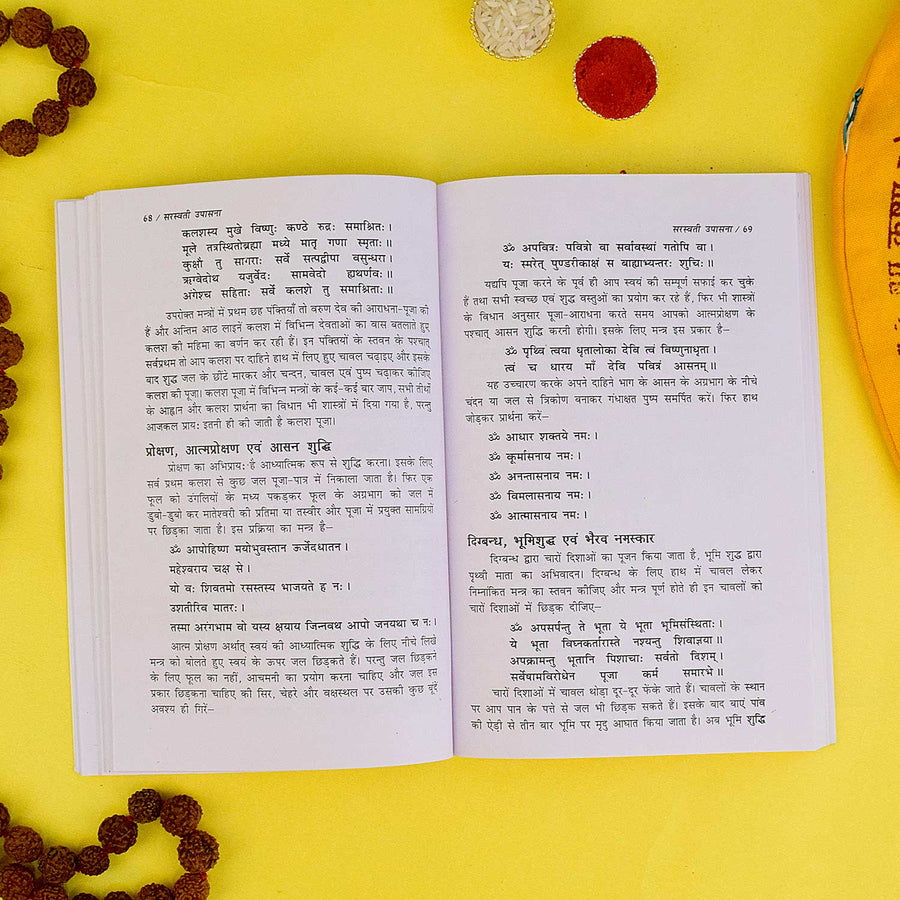 68 / सरस्वती उपासना
कलशस्य मुखे विष्णुः कण्ठे रुद्रः समाश्रितः।
मूले तत्रस्थितोब्रह्मा मध्ये मातृ गणा स्मृताः॥
कुक्षौ तु सागराः सर्वे सत्पद्वीपा वसुन्धरा।
ऋग्वेदोथ यजुर्वेदः सामवेदो ह्यथर्णवः॥
अंगेश्च सहिताः सर्वे कलशे तु समाश्रिताः॥
उपरोक्त मन्त्रों में प्रथम छह पंक्तियाँ तो वरुण देव की आराधना-पूजा की
हैं और अन्तिम आठ लाइनें कलश में विभिन्न देवताओं का वास बतलाते हुए
कलश की महिमा का वर्णन कर रही हैं। इन पंक्तियों के स्तवन के पश्चात्
सर्वप्रथम तो आप कलश पर दाहिने हाथ में लिए हुए चावल चढ़ाइए और इसके
बाद शुद्ध जल के छींटे मारकर और चन्दन, चावल एवं पुष्प चढ़ाकर कीजिए
कलश की पूजा। कलश पूजा में विभिन्न मन्त्रों के कई-कई बार जाप, सभी तीर्थों
के आह्वान और कलश प्रार्थना का विधान भी शास्त्रों में दिया गया है, परन्तु
आजकल प्रायः इतनी ही की जाती है कलश पूजा।
प्रोक्षण, आत्मप्रोक्षण एवं आसन शुद्धि
प्रोक्षण का अभिप्रायः है आध्यात्मिक रूप से शुद्धि करना। इसके लिए
सर्व प्रथम कलश से कुछ जल पूजा-पात्र में निकाला जाता है। फिर एक
फूल को उंगलियों के मध्य पकड़कर फूल के अग्रभाग को जल में
डुबो-डुबो कर मातेश्वरी की प्रतिमा या तस्वीर और पूजा में प्रयुक्त सामग्रियों
पर छिड़का जाता है। इस प्रक्रिया का मन्त्र है—
ॐ आपोहिष्ण मयोभुवस्तान ऊर्जेदधातन।
महेश्वराय चक्ष से।
यो वः शिवतमो रसस्तस्य भाजयते ह नः।
उशतीरिव मातरः।
तस्मा अरंगभाम वो यस्य क्षयाय जिन्नवथ आपो जनयथा च नः।
आत्म प्रोक्षण अर्थात् स्वयं की आध्यात्मिक शुद्धि के लिए नीचे लिखे
मन्त्र को बोलते हुए स्वयं के ऊपर जल छिड़कते हैं। परन्तु जल छिड़कने
के लिए फूल का नहीं, आचमनी का प्रयोग करना चाहिए और जल इस
प्रकार छिड़कना चाहिए की सिर, चेहरे और वक्षस्थल पर उसकी कुछ बूंदें
अवश्य ही गिरें—
सरस्वती उपासना / 69
ॐ अपवित्रः पवित्रो वा सर्वावस्थां गतोपि वा।
यः स्मरेत् पुण्डरीकाक्षं स बाह्याभ्यन्तरः शुचिः॥
यद्यपि पूजा करने के पूर्व ही आप स्वयं की सम्पूर्ण सफाई कर चुके
हैं तथा सभी स्वच्छ एवं शुद्ध वस्तुओं का प्रयोग कर रहे हैं, फिर भी शास्त्रों
के विधान अनुसार पूजा-आराधना करते समय आपको आत्मप्रोक्षण के
पश्चात् आसन शुद्धि करनी होगी। इसके लिए मन्त्र इस प्रकार है—
ॐ पृथ्वि त्वया धृतालोका देवि त्वं विष्णुनाधृता।
त्वं च धारय माँ देवि पवित्रं आसनम्॥
यह उच्चारण करके अपने दाहिने भाग के आसन के अग्रभाग के नीचे
चंदन या जल से त्रिकोण बनाकर गंधाक्षत पुष्प समर्पित करें। फिर हाथ
जोड़कर प्रार्थना करें—
ॐ आधार शक्तये नमः।
ॐ कूर्मासनाय नमः।
ॐ अनन्तासनाय नमः।
ॐ विमलासनाय नमः।
ॐ आत्मासनाय नमः।
दिग्बन्ध, भूमिशुद्ध एवं भैरव नमस्कार
दिग्बन्ध द्वारा चारों दिशाओं का पूजन किया जाता है, भूमि शुद्ध द्वारा
पृथ्वी माता का अभिवादन। दिग्बन्ध के लिए हाथ में चावल लेकर
निम्नांकित मन्त्र का स्तवन कीजिए और मन्त्र पूर्ण होते ही इन चावलों को
चारों दिशाओं में छिड़क दीजिए—
ॐ अपसर्पन्तु ते भूता ये भूता भूमिसंस्थिताः।
ये भूता विघ्नकर्तारास्ते नश्यन्तु शिवाज्ञया॥
अपक्रामन्तु भूतानि पिशाचाः सर्वतो दिशम्।
सर्वेषामविरोधेन पूजा कर्म समारभे॥
चारों दिशाओं में चावल थोड़ा दूर-दूर फेंके जाते हैं। चावलों के स्थान
पर आप पान के पत्ते से जल भी छिड़क सकते हैं। इसके बाद बाएं पांव
की ऐड़ी से तीन बार भूमि पर मृदु आघात किया जाता है। अब भूमि शुद्धि